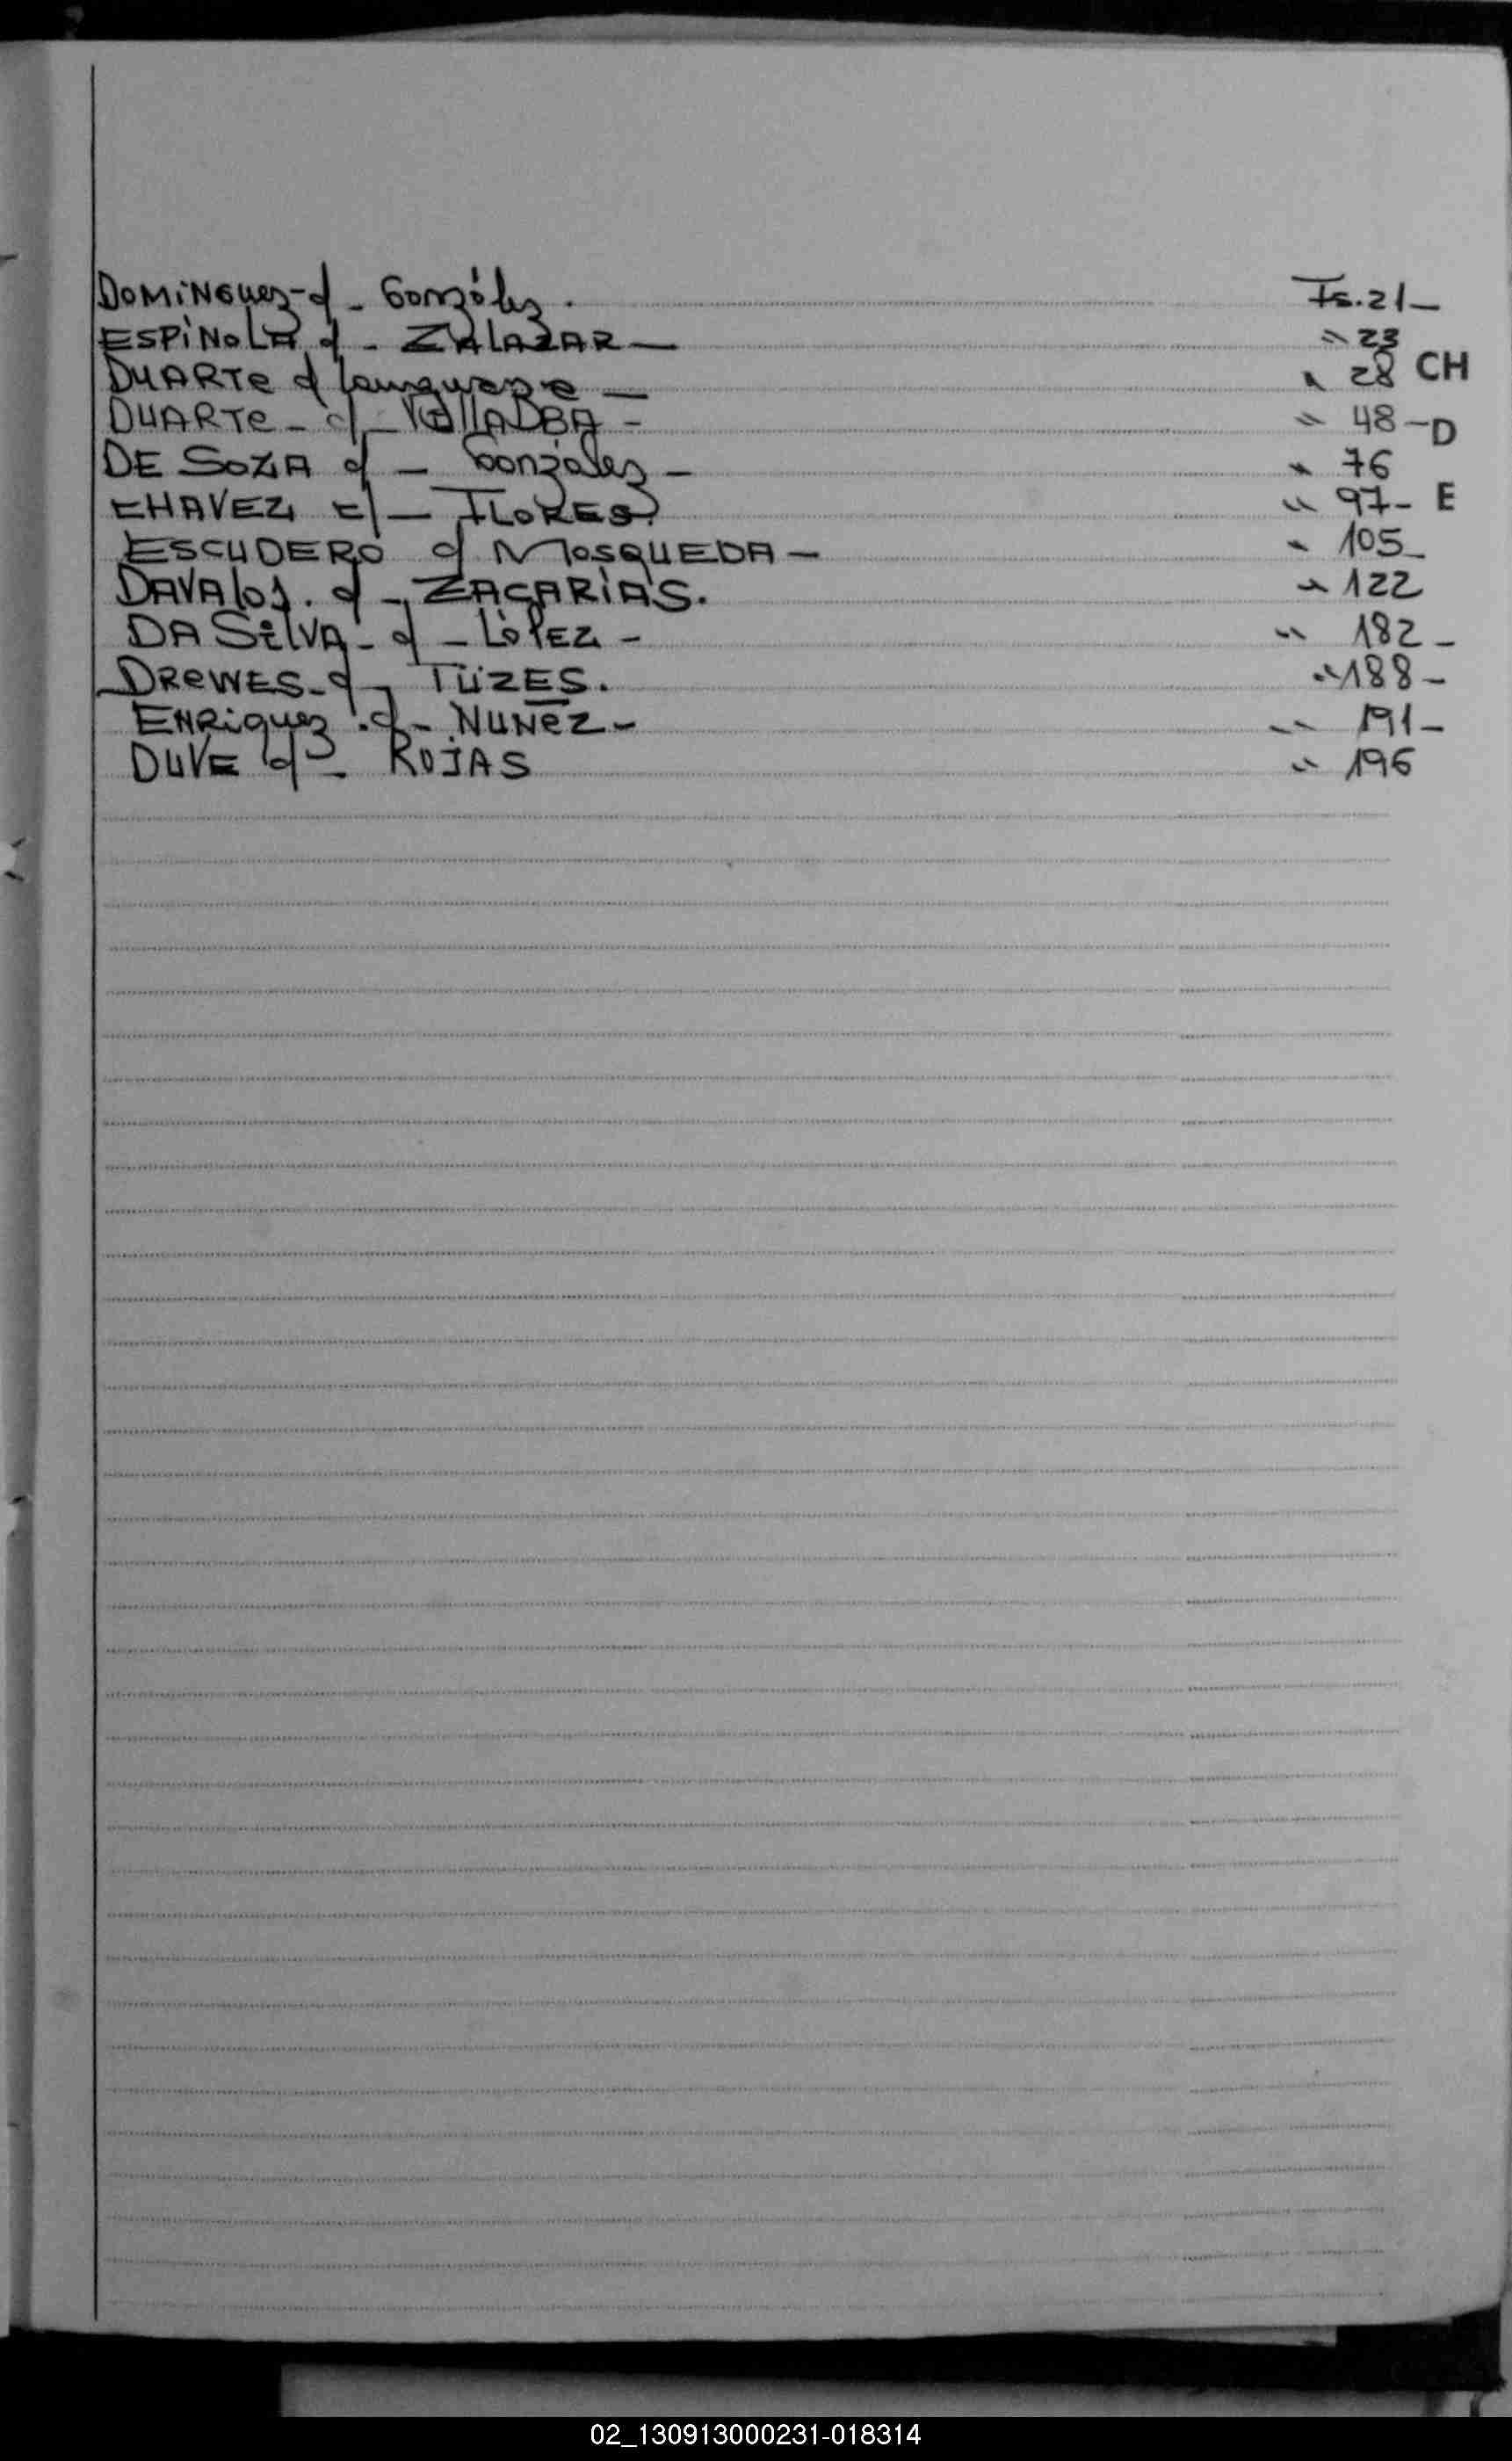 DOMINGUEZ - c/ - González. Fs. 21 -
ESPINOLA c/ - ZALAZAR - " 23
DUARTE c/ - " 28 CH
DUARTE - c/ - VILLALBA - " 48 - D
DE SOZA c/ - Gonzales - " 76
CHAVEZ c/ - FLORES. " 97 - E
ESCUDERO c/ MOSQUEDA - " 105 -
DAVALOS. c/ - ZACARIAS. " 122
DA SILVA - c/ - LÓPEZ - " 182 -
DREWES - c/ - TÜZES. " 188 -
ENRIQUEZ. c/ - NUÑEZ - " 191 -
DUVE c/ - ROJAS " 196
02_130913000231-018314